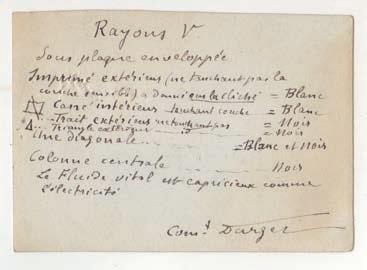 Rayons V
Sous plaque enveloppée
Imprimé extérieur (ne touchant pas la
couche sensible) a donné sur le cliché = Blanc
Carré intérieur touchant couche = Blanc
Trait extérieur ne touchant pas = Noir
Triangle extérieur id = Noir
Une diagonale = Blanc et Noir
Colonne centrale Noir
Le Fluide vital est capricieux comme
l'électricité
Comt Darget